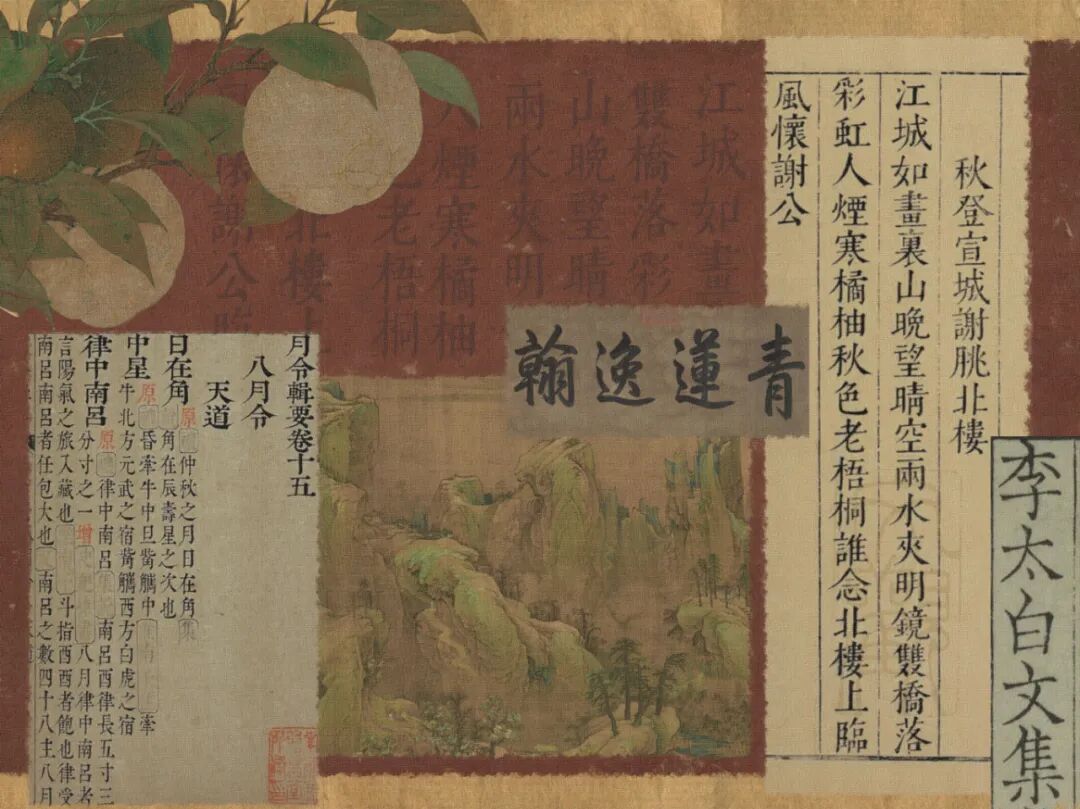 李太白文集
秋登宣城謝朓北樓
江城如畫裏山晚望晴空兩水夾明鏡雙橋落
彩虹人煙寒橘柚秋色老梧桐誰念北樓上臨
風懷謝公
青蓮逸翰
江城如畫
雙橋落彩
山晚望晴
兩水夾明
人煙寒橘柚
色老梧桐
北樓上
懷謝公臨
月令輯要卷十五
八月令
天道
日在角 原 仲秋之月日在角 集
角在辰壽星之次也
中星 原 昏牽牛中旦觜觿中 牽
牛北方元武之宿觜觿西方白虎之宿
律中南呂 原 律中南呂 南呂酉律長五寸三
分寸之一 增 八月律中南呂者
言陽氣之旅入藏也 斗指酉酉者飽也律受
南呂南呂者任包大也 南呂之數四十八主八月